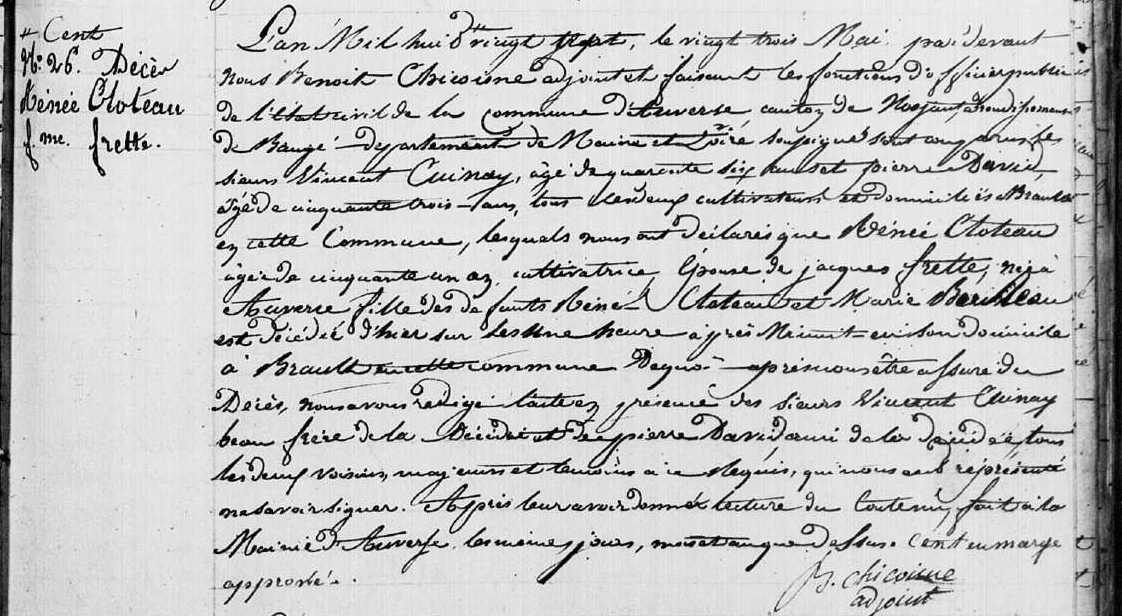 + Cent
N.o 26. Décès
Rénée Cloteau
f. me. frette.
L'an Mil huit vingt sept, le vingt trois Mai par devant
nous Benoit Chicoisne adjoint et faisant les fonctions d'officier public
de l'état civil de la commune d'Auverse canton de Noyant arondissement
de Baugé département de Maine et Loire soussigné sont comparus les
sieurs Vincent Cuinay, âgé de quarante six ans et pierre David,
âgé de cinquante trois ans, tous les deux cultivateurs et domiciliés à Brault
en cette Commune, lesquels nous ont déclarés que Rénée Cloteau
âgée de cinquante un an cultivatrice Epouse de jacques frette, née à
Auverse fille des défunts Réné Cloteau et Marie
est décédée d'hier sur les Une heure après Minuit en son domicile
à Brault en cette commune Dequoi après nous être assuré du
Décès, nous avons redigé l'acte en présence des sieurs Vincent Cuinay
beau frère de la Décédée et de pierre David ami de la décédée, tous
les deux voisins, majeurs et temoins à ce Requis, qui nous ont
ne savoir signer. Après leur avoir donné lecture du Contenu, fait à la
Mairie d'Auverse les mêmes jours, mois et an que Dessus. Cent en marge
approuvé.
B. chicoisne
adjoint